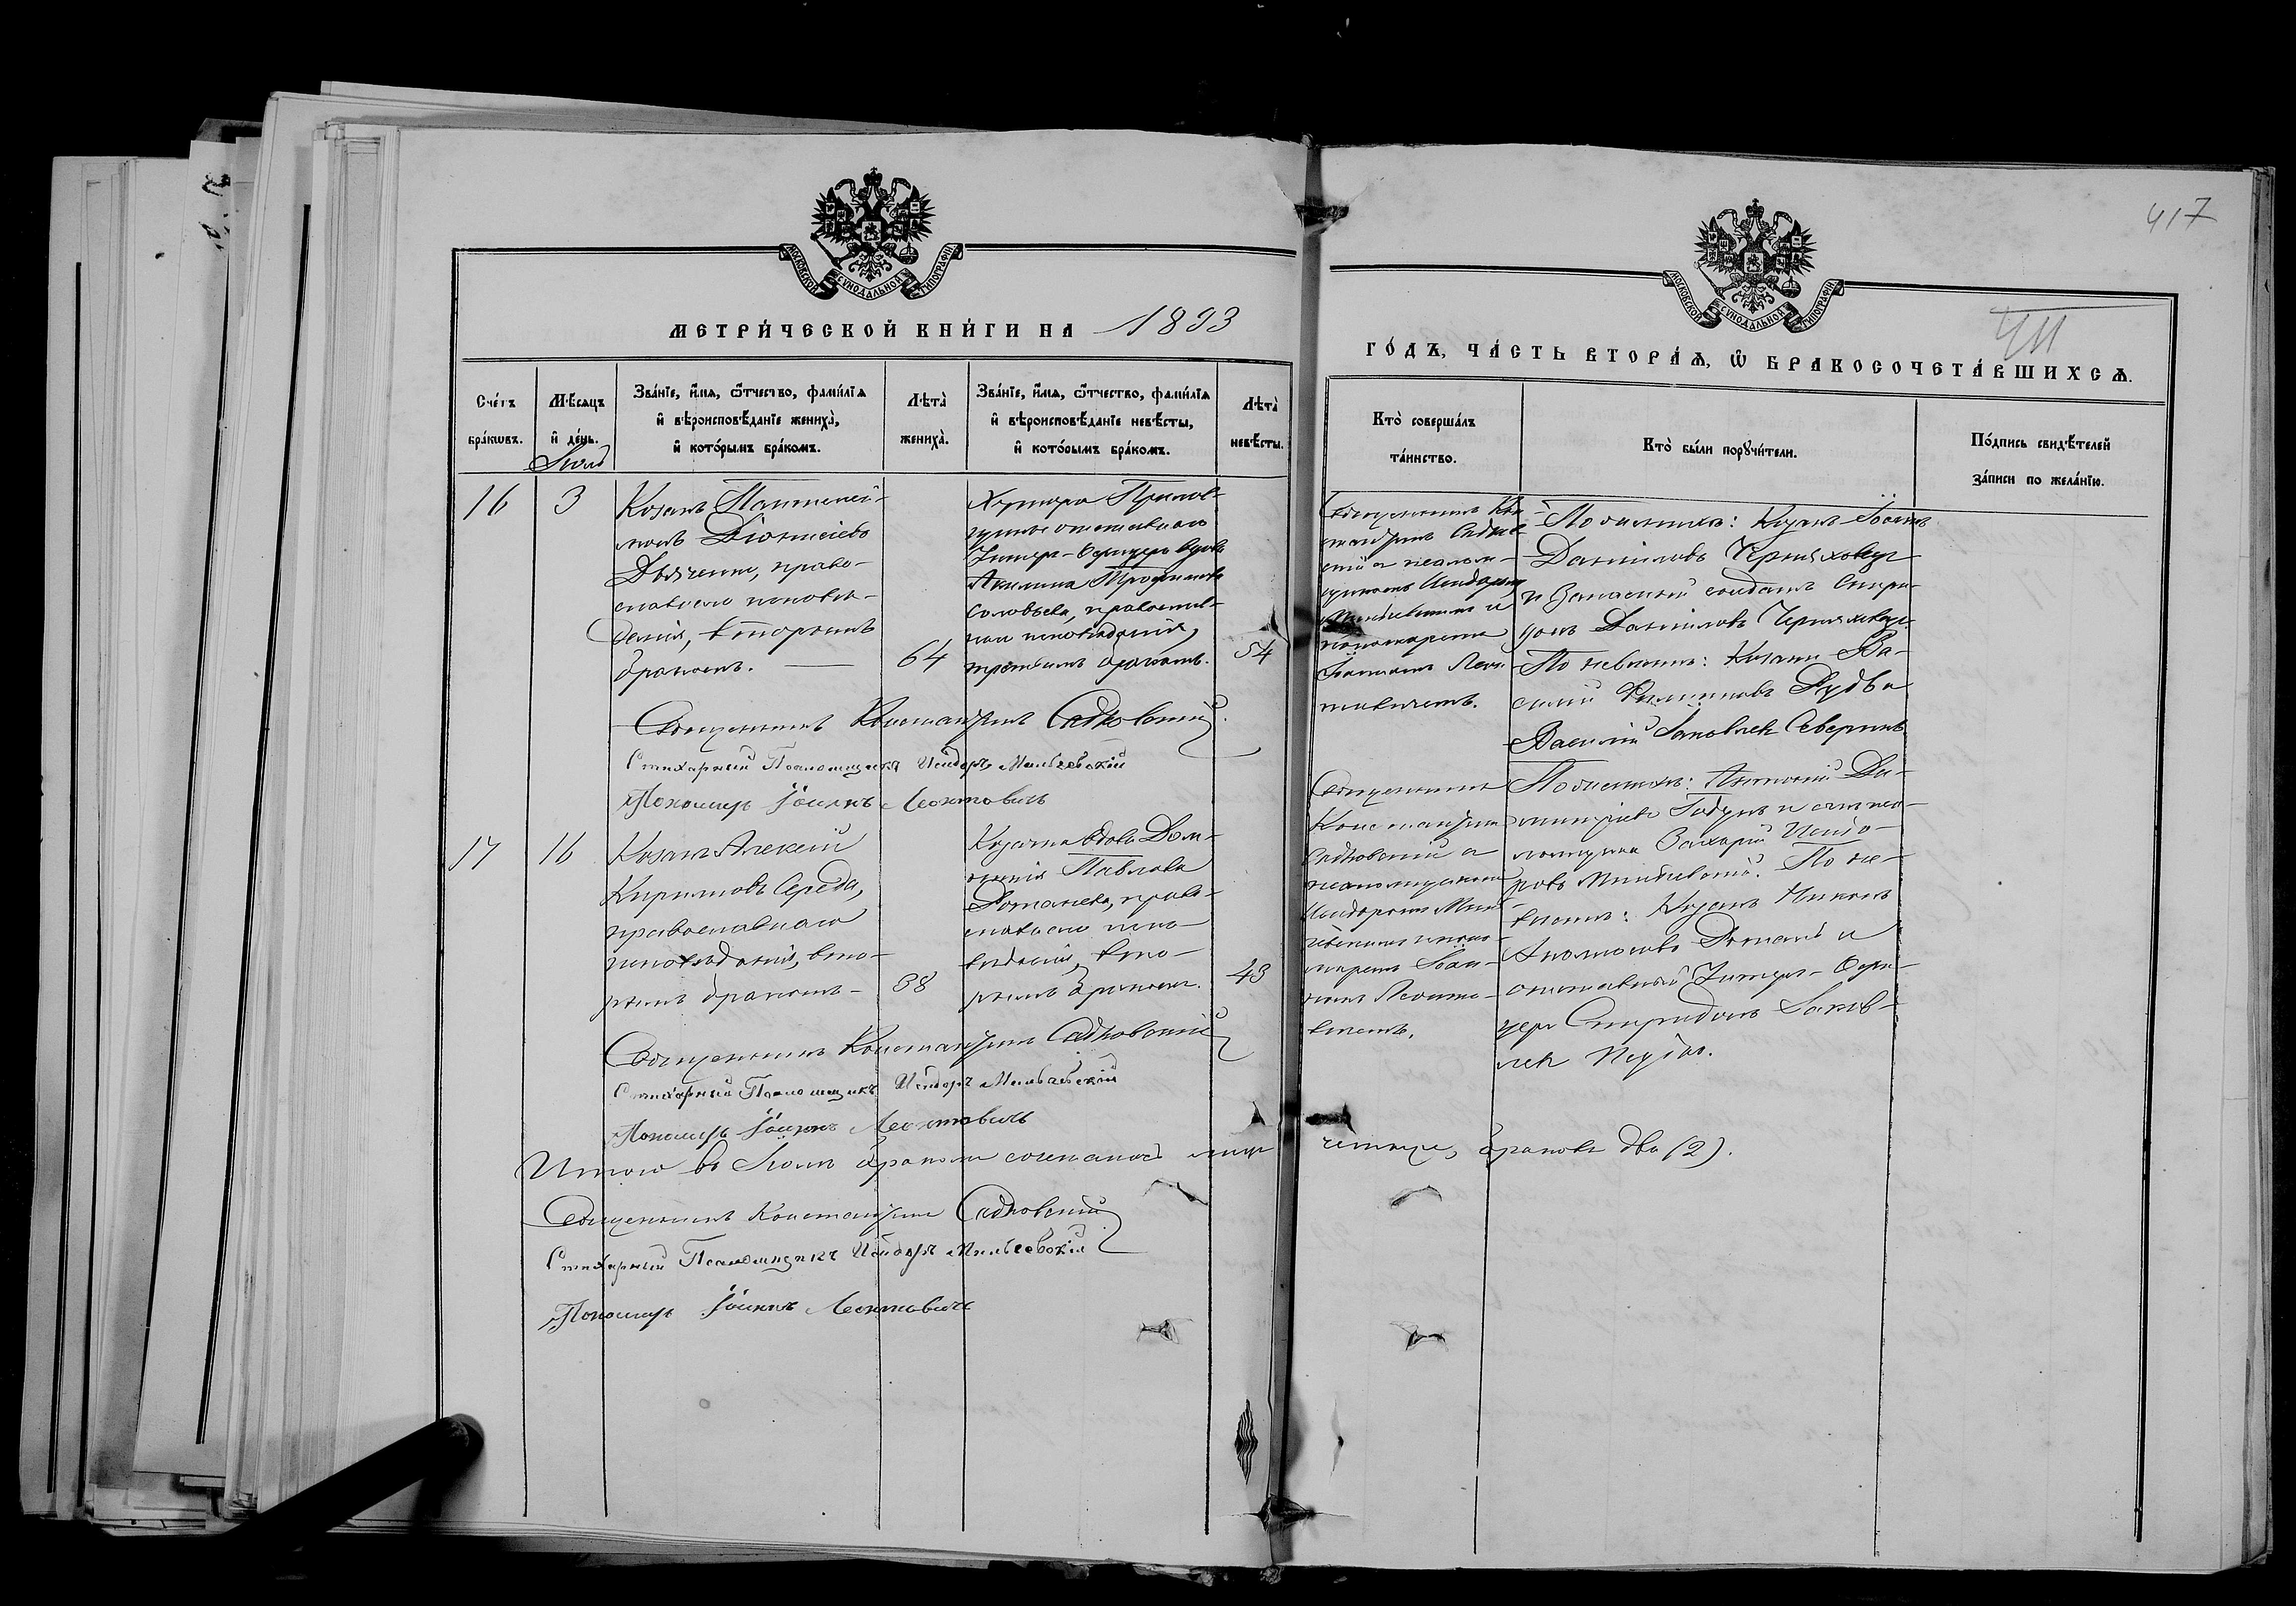 417
МОСКОВСКОЙ СѴНОДАЛЬНОЙ ТИПОГРАФІИ
МОСКОВСКОЙ СѴНОДАЛЬНОЙ ТИПОГРАФІИ
МЕТРИ́ЧЕСКОЙ КНИ́ГИ НА 1893
ГО́ДЪ, ЧА́СТЬ ВТОРА́Ѧ, Ѡ҆ БРАКОСОЧЕТА́ВШИХСѦ.
Сче́тъ бра́кѡвъ.
Мѣ́сѧцъ и҆ де́нь.
Зва́нїе, и҆́мѧ, ѻ҆́тчество, фамі́лїѧ и҆ вѣроисповѣ́данїе жениха̀, и҆ кото́рымъ бра́комъ.
Лѣта̀ жениха̀.
Зва́нїе, и҆́мѧ, ѻ҆́тчество, фамі́лїѧ и҆ вѣроисповѣ́данїе невѣ́сты, и҆ кото́рымъ бра́комъ.
Лѣта̀ невѣ́сты.
Кто̀ соверша́лъ та́инство.
Кто̀ бы́ли порꙋчи́тели.
По́дпись свидѣ́телей за́писи по жела́нїю.
Іюль
16
3
Козакъ Пантелей-
монъ Діонисіевъ
Дьяченко, право-
славнаго исповѣ-
данія, вторымъ
бракомъ.
64
Хутора
отставнаго
Унтеръ-Офицера вдова
Акилина Трофимова
Соловьева, православ-
наго исповѣданія,
третьимъ бракомъ.
54
Священникъ Кон-
стантинъ Садков-
скій съ псалом-
щикомъ Исидоромъ
Мильчевскимъ и
пономаремъ
Іоанномъ Леон-
товичемъ.
По женихѣ: Козакъ Іоаннъ
Даніиловъ Черняховец
и Запасный солдатъ Спири-
донъ Даніиловъ Черняховец.
По невѣстѣ: Козаки Ва-
силій Филиповъ Дудка
Василій Іаковлевъ Северинъ
Священникъ Константинъ Садковскій
Стихарный Псаломщикъ Исидоръ Мильчевскій
Пономарь Іоаннъ Леонтовичъ
17
16
Козакъ Алексій
Кириловъ Середа,
православнаго
исповѣданія, вто-
рымъ бракомъ
38
Козачка вдова Дом-
никія Павлова
Романова, право-
славнаго испо-
вѣданія, вто-
рымъ бракомъ.
43
Священникъ
Константинъ
Садковскій съ
псаломщикомъ
Исидоромъ Миль-
чевскимъ и поно-
маремъ Іоан-
номъ Леонто-
вичемъ.
По женихѣ: Антоній Ди-
митріевъ Годунъ и сынъ пса-
ломщика Захарій Исидо-
ровъ Мильчевскій. По не-
вѣстѣ: Козакъ Никонъ
Романъ и
отставный Унтеръ-Офи-
церъ Спиридонъ Іаков-
левъ
Священникъ Константинъ Садковскій
Стихарный Псаломщикъ Исидоръ Мильчевскій
Пономарь Іоаннъ Леонтовичъ
Итого въ Іюлѣ бракомъ сочеталось лицъ четыре, браковъ два (2).
Священникъ Константинъ Садковскій
Стихарный Псаломщикъ Исидоръ Мильчевскій
Пономарь Іоаннъ Леонтовичъ